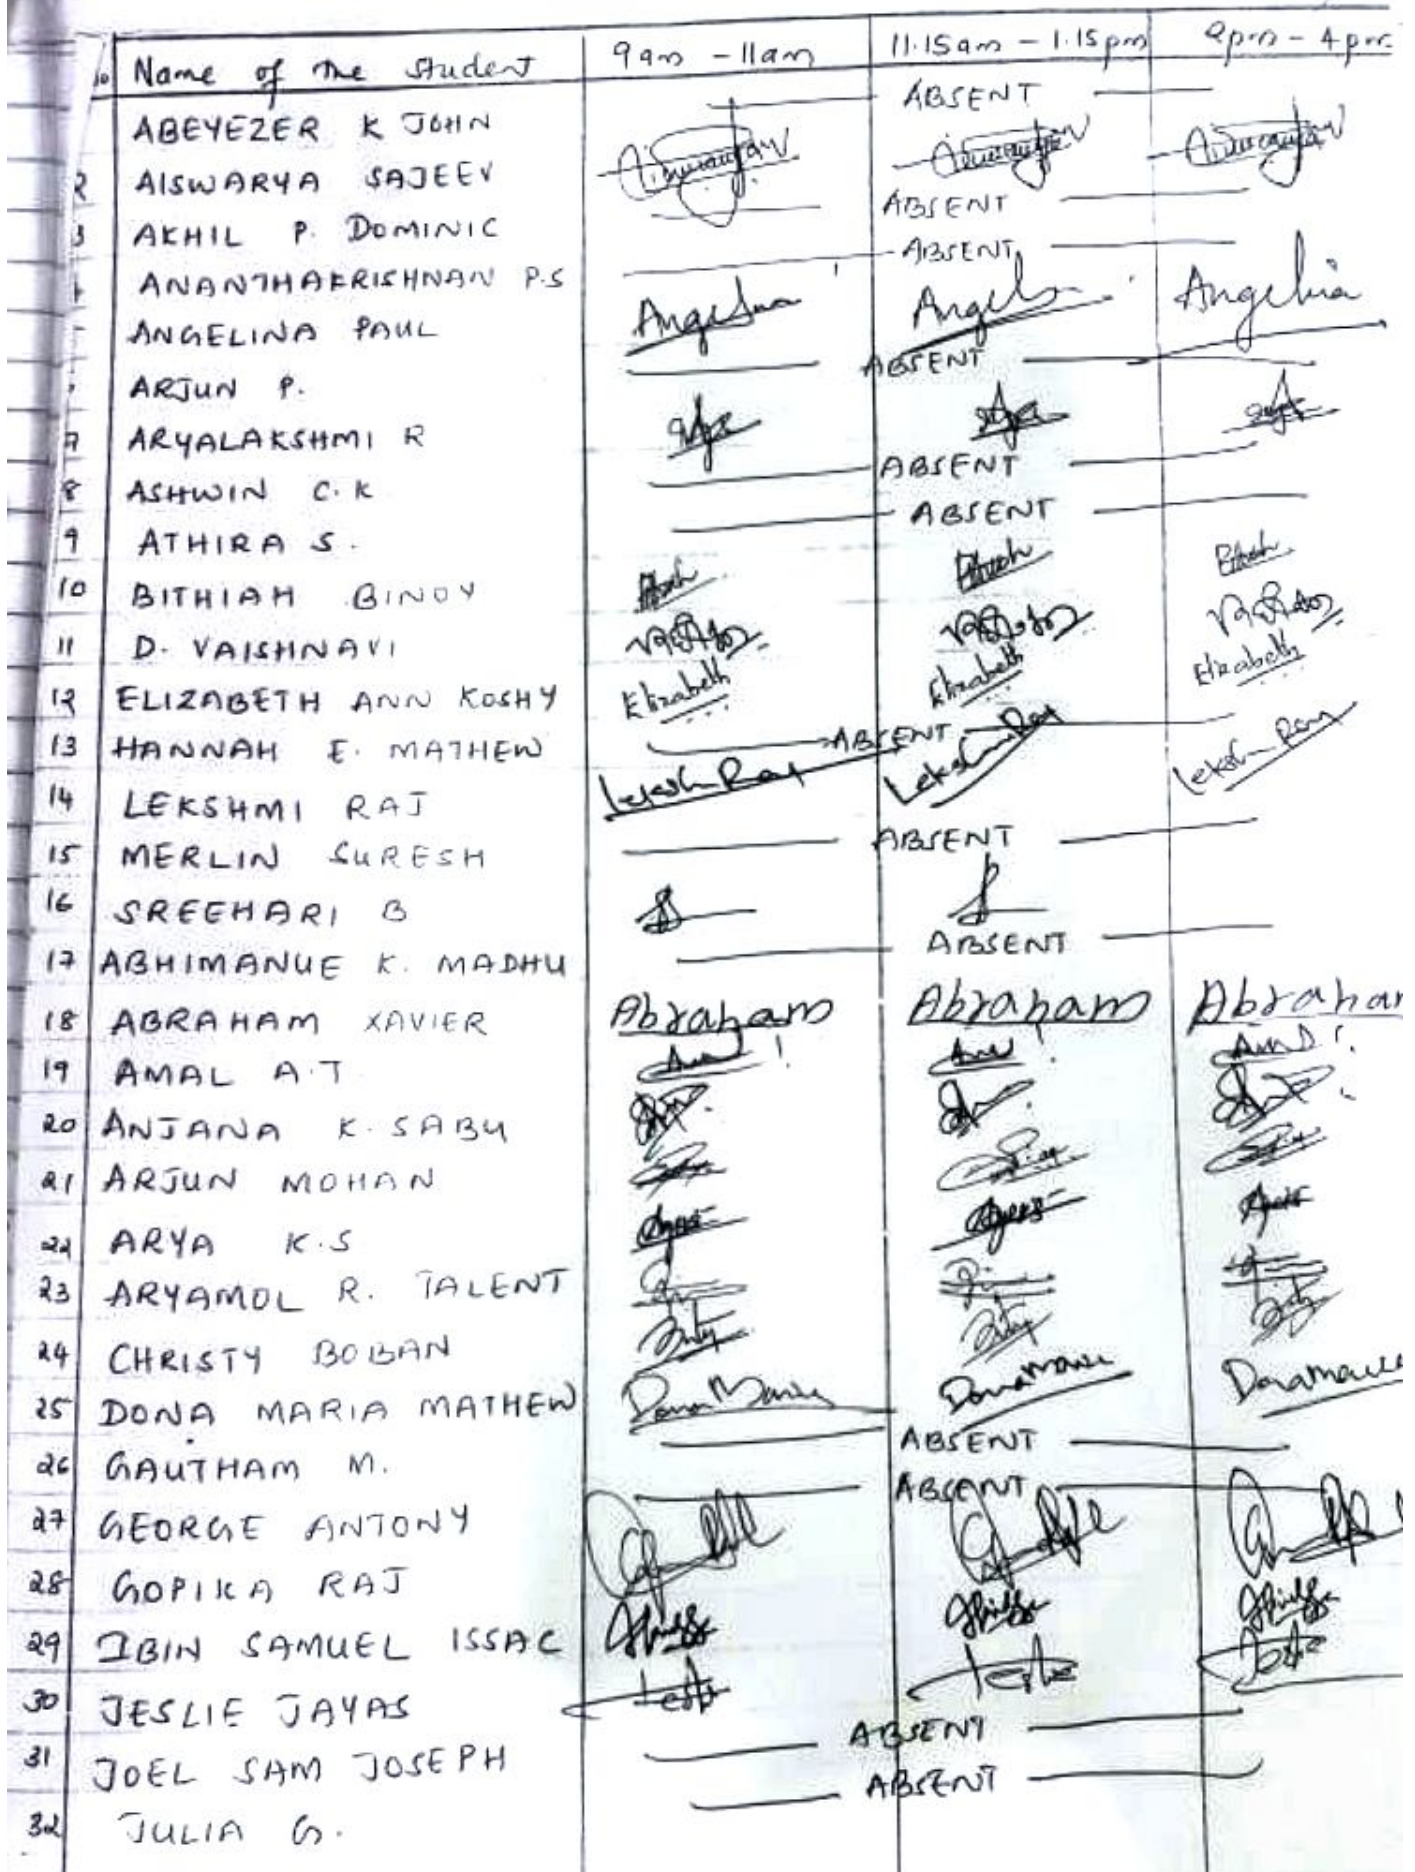 Name of the student 9am - 11am 11.15am - 1.15pm 2pm - 4pm
ABEYEZER K JOHN ABSENT
2 AISWARYA SAJEEV
3 AKHIL P. DOMINIC ABSENT
ANANTHAKRISHNAN P.S ABSENT
ANGELINA PAUL Angelina Angelina
ARJUN P. ABSENT
7 ARYALAKSHMI R
8 ASHWIN C.K ABSENT
9 ATHIRA S. ABSENT
10 BITHIAH BINOY
11 D. VAISHNAVI
12 ELIZABETH ANN KOSHY Elizabeth Elizabeth Elizabeth
13 HANNAH E. MATHEW ABSENT
14 LEKSHMI RAJ
15 MERLIN SURESH ABSENT
16 SREEHARI B
17 ABHIMANUE K. MADHU ABSENT
18 ABRAHAM XAVIER Abraham Abraham Abraham
19 AMAL A.T
20 ANJANA K. SABU
21 ARJUN MOHAN
22 ARYA K.S
23 ARYAMOL R. TALENT
24 CHRISTY BOBAN
25 DONA MARIA MATHEW
26 GAUTHAM M. ABSENT
27 GEORGE ANTONY ABSENT
28 GOPIKA RAJ
29 IBIN SAMUEL ISSAC
30 JESLIE JAYAS
31 JOEL SAM JOSEPH ABSENT
32 JULIA G. ABSENT